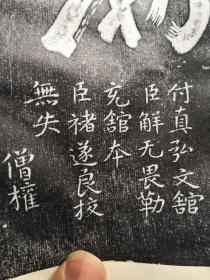 付真弘文舘
臣解无畏勒
充舘本
臣褚遂良挍
無失
僧權